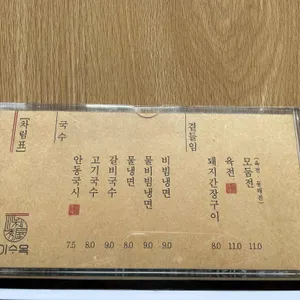 [차림표]
국수
안동국시 7.5
고기국수 8.0
갈비국수 9.0
물냉면 8.0
물비빔냉면 9.0
비빔냉면 9.0
곁들임
돼지간장구이 8.0
육전 11.0
모둠전 11.0
이수옥